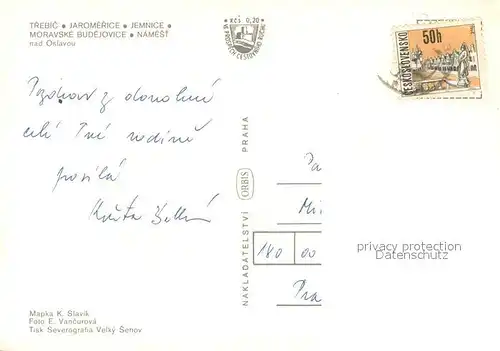 TŘEBÍČ • JAROMĚŘICE • JEMNICE •
MORAVSKÉ BUDĚJOVICE • NÁMĚŠŤ
nad Oslavou
Kčs 0,20
VE PROSPĚCH CESTOVNÍHO RUCHU
ČESKOSLOVENSKO
50h
Pozdrav z dovolené
celé Tvé rodině
posílá
Květa
NAKLADATELSTVÍ ORBIS PRAHA
Pa
Mi
180 00
Pra
privacy protection
Datenschutz
Mapka K. Slavík
Foto E. Vančurová
Tisk Severografia Velký Šenov